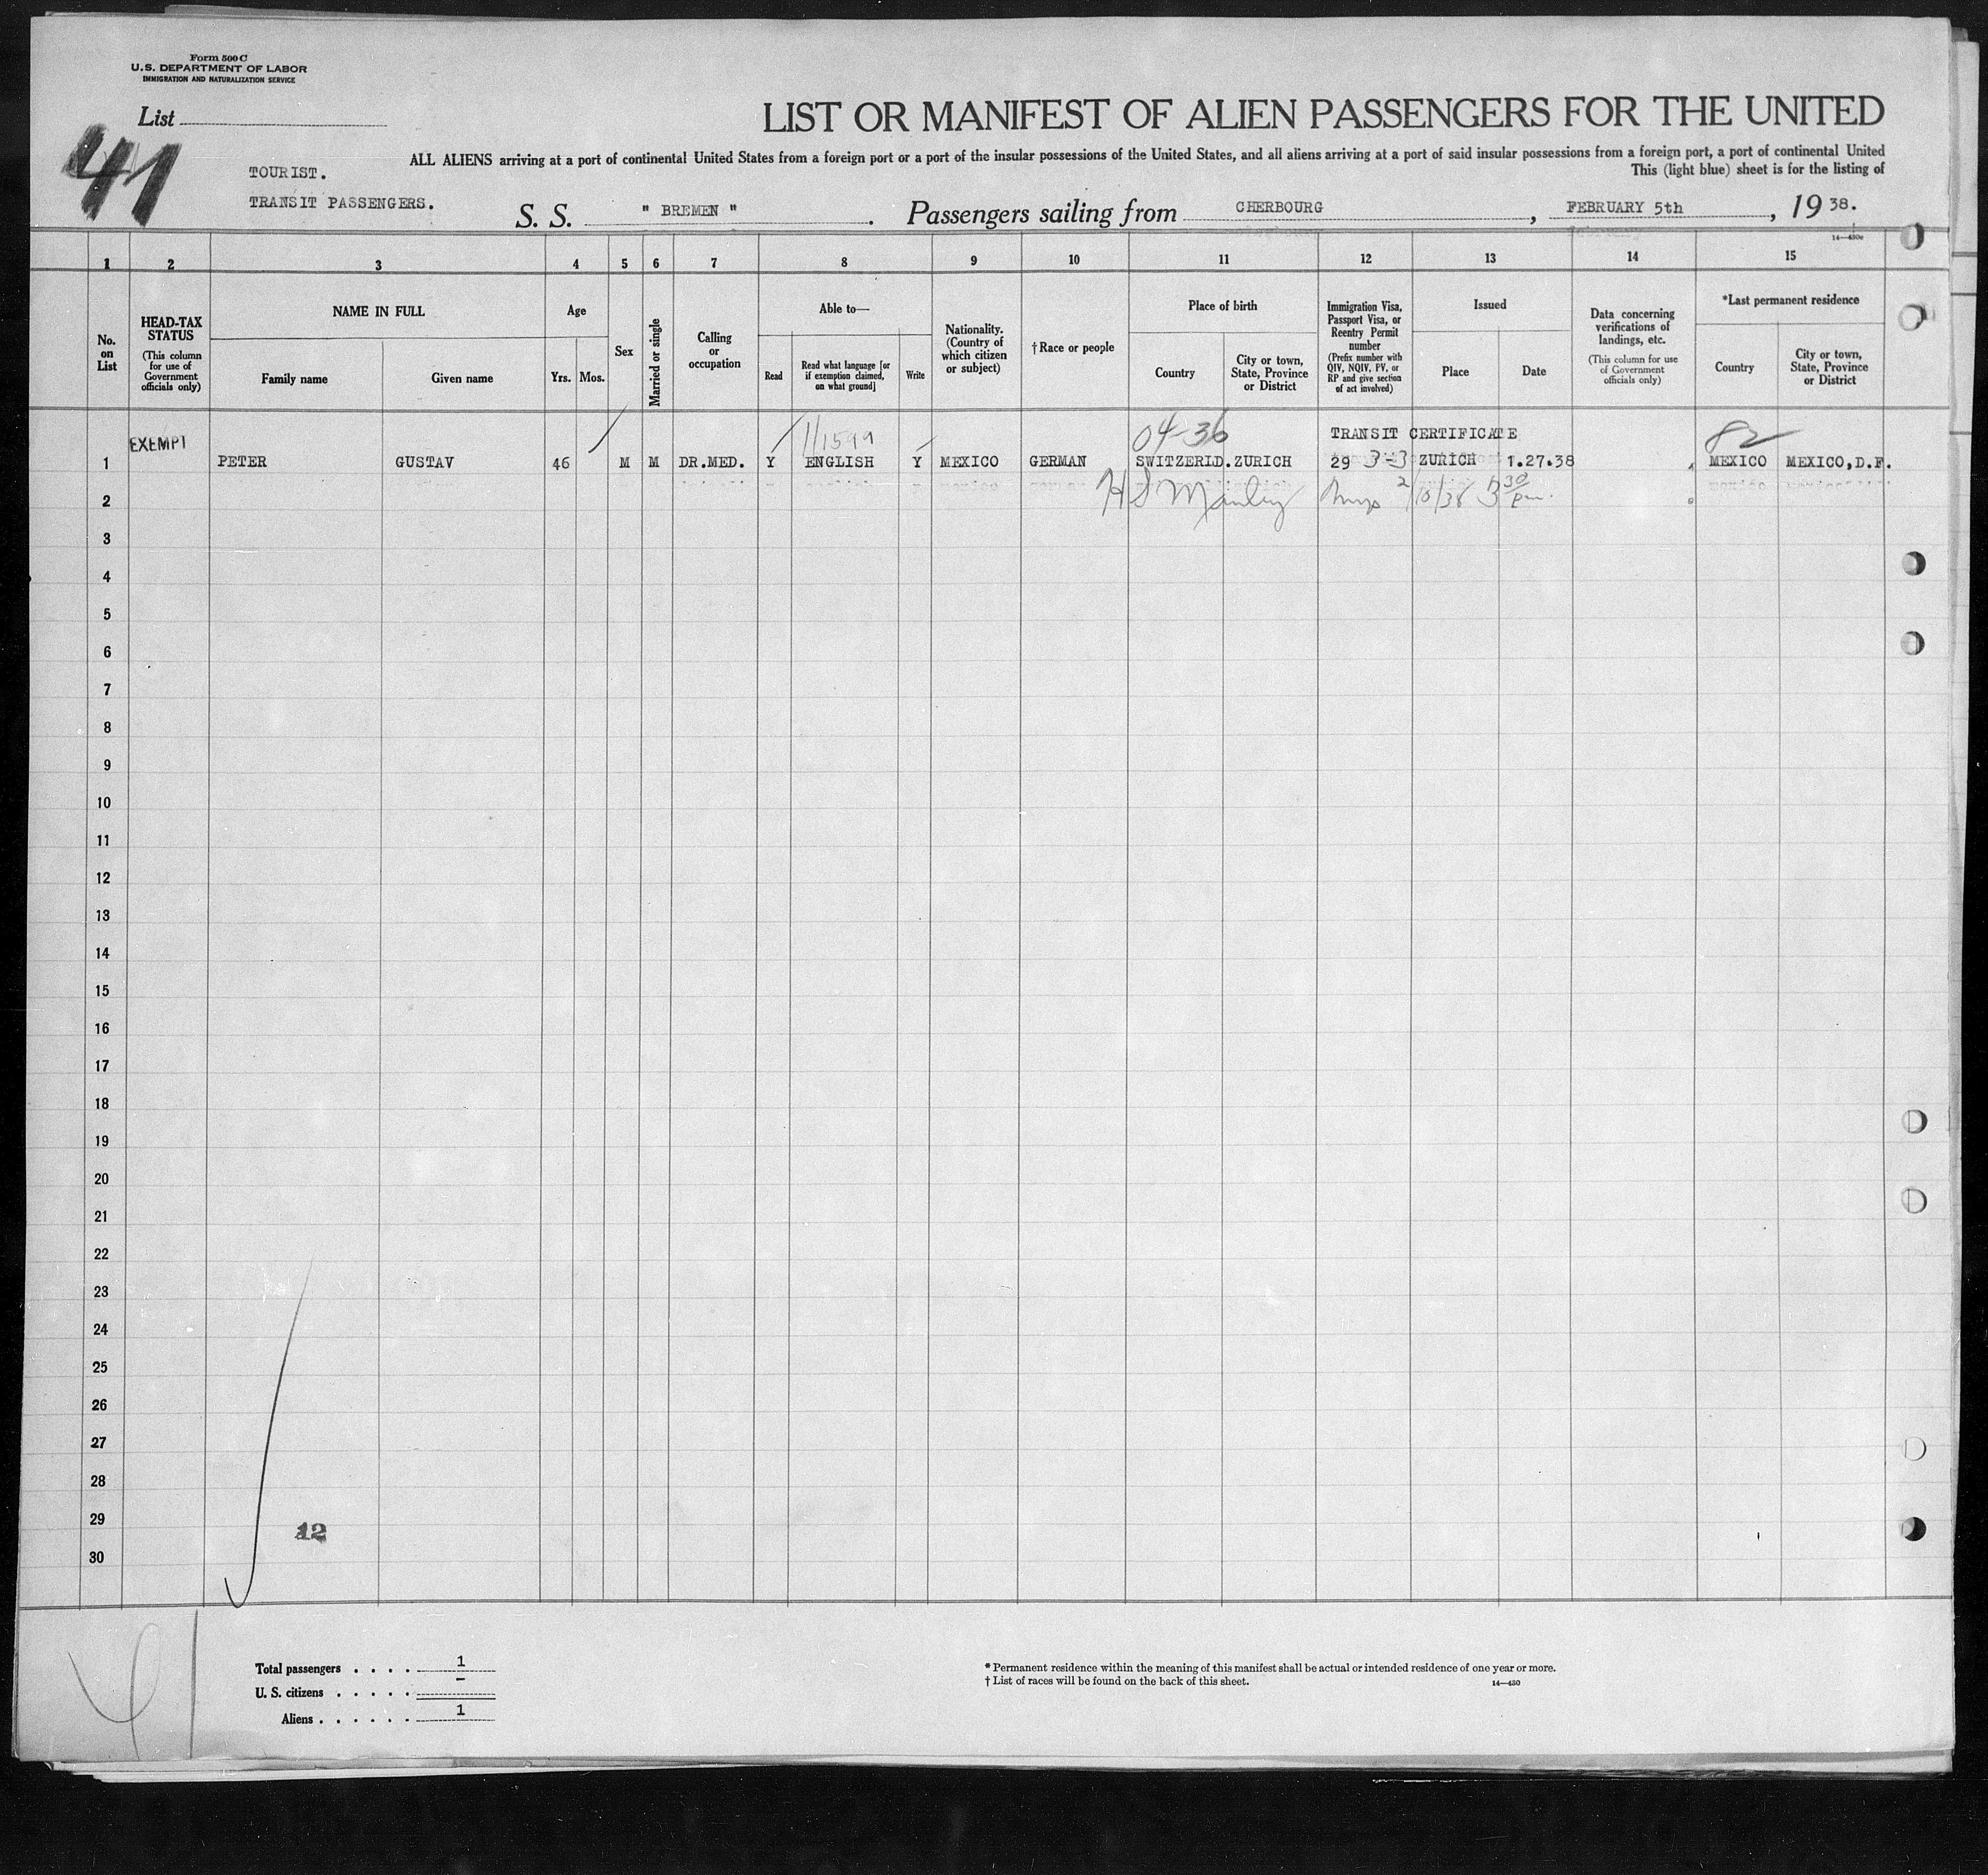 Form 500 C
U.S. DEPARTMENT OF LABOR
IMMIGRATION AND NATURALIZATION SERVICE
List
41
LIST OR MANIFEST OF ALIEN PASSENGERS FOR THE UNITED
ALL ALIENS arriving at a port of continental United States from a foreign port or a port of the insular possessions of the United States, and all aliens arriving at a port of said insular possessions from a foreign port, a port of continental United
This (light blue) sheet is for the listing of
TOURIST.
TRANSIT PASSENGERS.
S. S. " BREMEN ". Passengers sailing from CHERBOURG, FEBRUARY 5th, 19 38.
14—430e
1 2 3 4 5 6 7 8 9 10 11 12 13 14 15
No. on List
HEAD-TAX STATUS (This column for use of Government officials only)
NAME IN FULL
Family name Given name
Age
Yrs. Mos.
Sex
Married or single
Calling or occupation
Able to—
Read Read what language [or if exemption claimed, on what ground] Write
Nationality. (Country of which citizen or subject)
†Race or people
Place of birth
Country City or town, State, Province or District
Immigration Visa, Passport Visa, or Reentry Permit number (Prefix number with QIV, NQIV, PV, or RP and give section of act involved)
Issued
Place Date
Data concerning verifications of landings, etc. (This column for use of Government officials only)
*Last permanent residence
Country City or town, State, Province or District
EXEMPT 04-36 TRANSIT CERTIFICATE 82
1 PETER GUSTAV 46 M M DR.MED. Y ENGLISH Y MEXICO GERMAN SWITZERLD. ZURICH 29 3-3 ZURICH 1.27.38 MEXICO MEXICO,D.F.
2 H S Manley 2/10/38 3 30 pm.
3
4
5
6
7
8
9
10
11
12
13
14
15
16
17
18
19
20
21
22
23
24
25
26
27
28
29
12
30
41
Total passengers . . . . 1
U. S. citizens . . . . . –
Aliens . . . . . . 1
* Permanent residence within the meaning of this manifest shall be actual or intended residence of one year or more.
† List of races will be found on the back of this sheet.
14—430